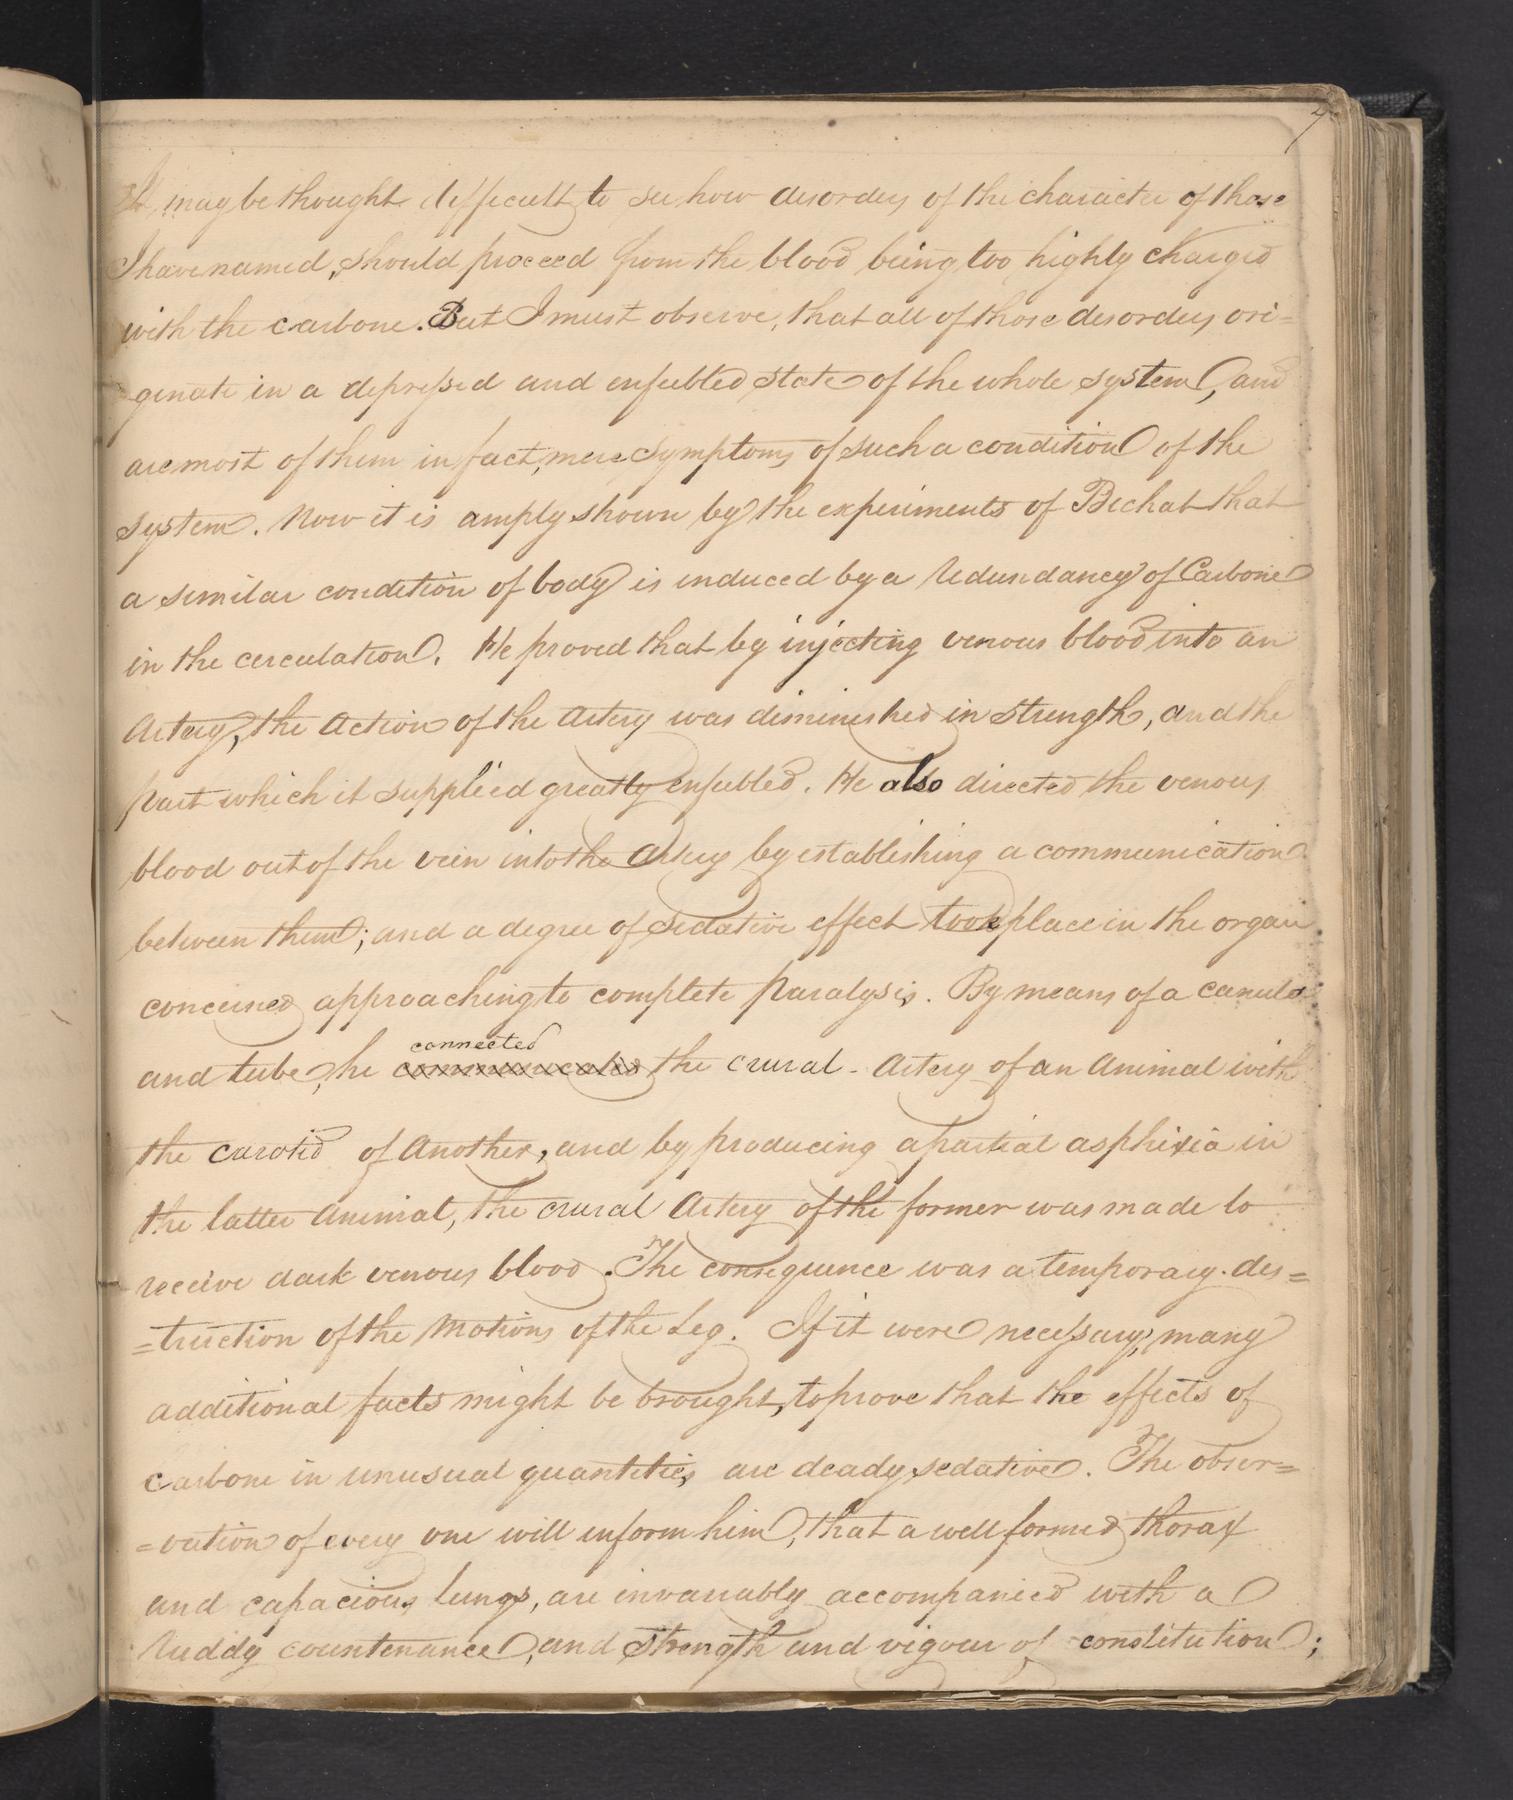 7
It may be thought difficult to see how disorders of the character of those
I have named, should proceed from the blood being too highly charged
with the carbone. But I must observe, that all of those disorders ori=
ginate in a depressed and enfeebled state of the whole system, and
are most of them in fact, mere symptoms of such a condition of the
system. Now it is amply shown by the experiments of Bichat that
a similar condition of body is induced by a redundancy of Carbone
in the circulation. He proved that by injecting venous blood into an
Artery, the Action of the Artery was diminished in strength, and the
part which it supplied greatly enfeebled. He also directed the venous
blood out of the vein into the Artery by establishing a communication
between them; and a degree of sedative effect took place in the organ
concerned approaching to complete paralysis. By means of a canula
connected
and tube, he communicated the crural - Artery of an Animal with
the carotid of Another, and by producing a partial asphixia in
the latter Animal, the crural Artery of the former was made to
receive dark venous blood. The consequence was a temporary des=
=truction of the Motions of the Leg. If it were necessary, many
additional facts might be brought, to prove that the effects of
carbone in unusual quantities, are deady sedative. The obser=
=vation of every one will inform him, that a well formed thorax
and capacious lungs, are invariably accompanied with a
ruddy countenance, and strength and vigour of constitution;